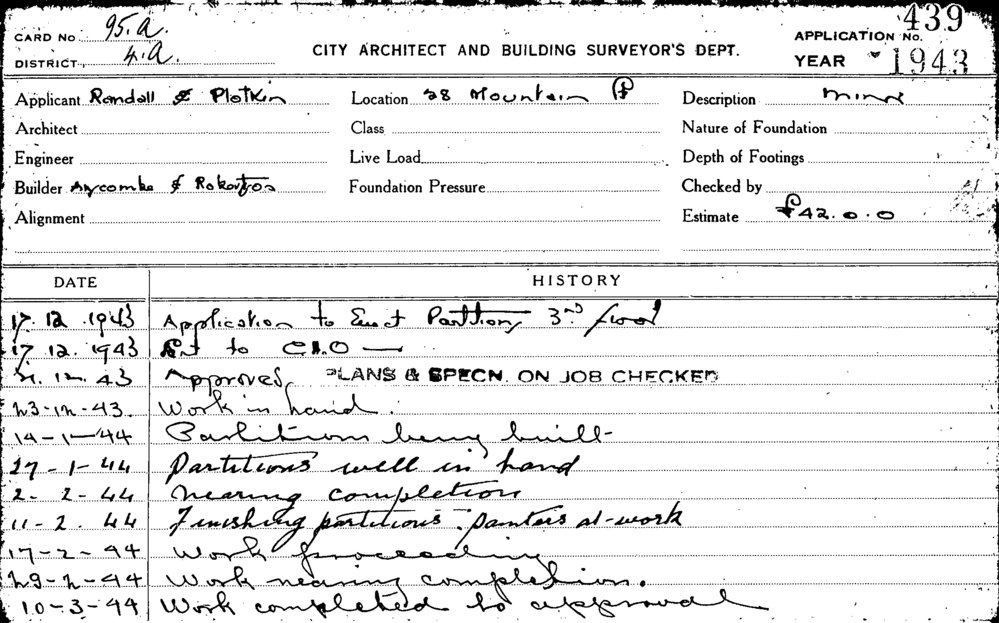 CARD No 95.a.
DISTRICT, 4.A.
CITY ARCHITECT AND BUILDING SURVEYOR'S DEPT.
APPLICATION No. 439
YEAR 1943
Applicant Randall & Plotkin
Location 28 Mountain
Description minor
Architect
Class
Nature of Foundation
Engineer
Live Load
Depth of Footings
Builder &
Foundation Pressure
Checked by
Alignment
Estimate £42.0.0
DATE HISTORY
17.12.1943 Application to Erect Partitions 3rd floor
17.12.1943 to
.12.43 Approved PLANS & SPECN. ON JOB CHECKED
23-12-43. Work in hand.
14-1-44 Partitions being built
27-1-44 Partitions well in hand
2-2-44 nearing completion
11-2.44 Finishing partitions: painters at work
17-2-44 Work proceeding
29-2-44 Work nearing completion.
10-3-44 Work completed to approval